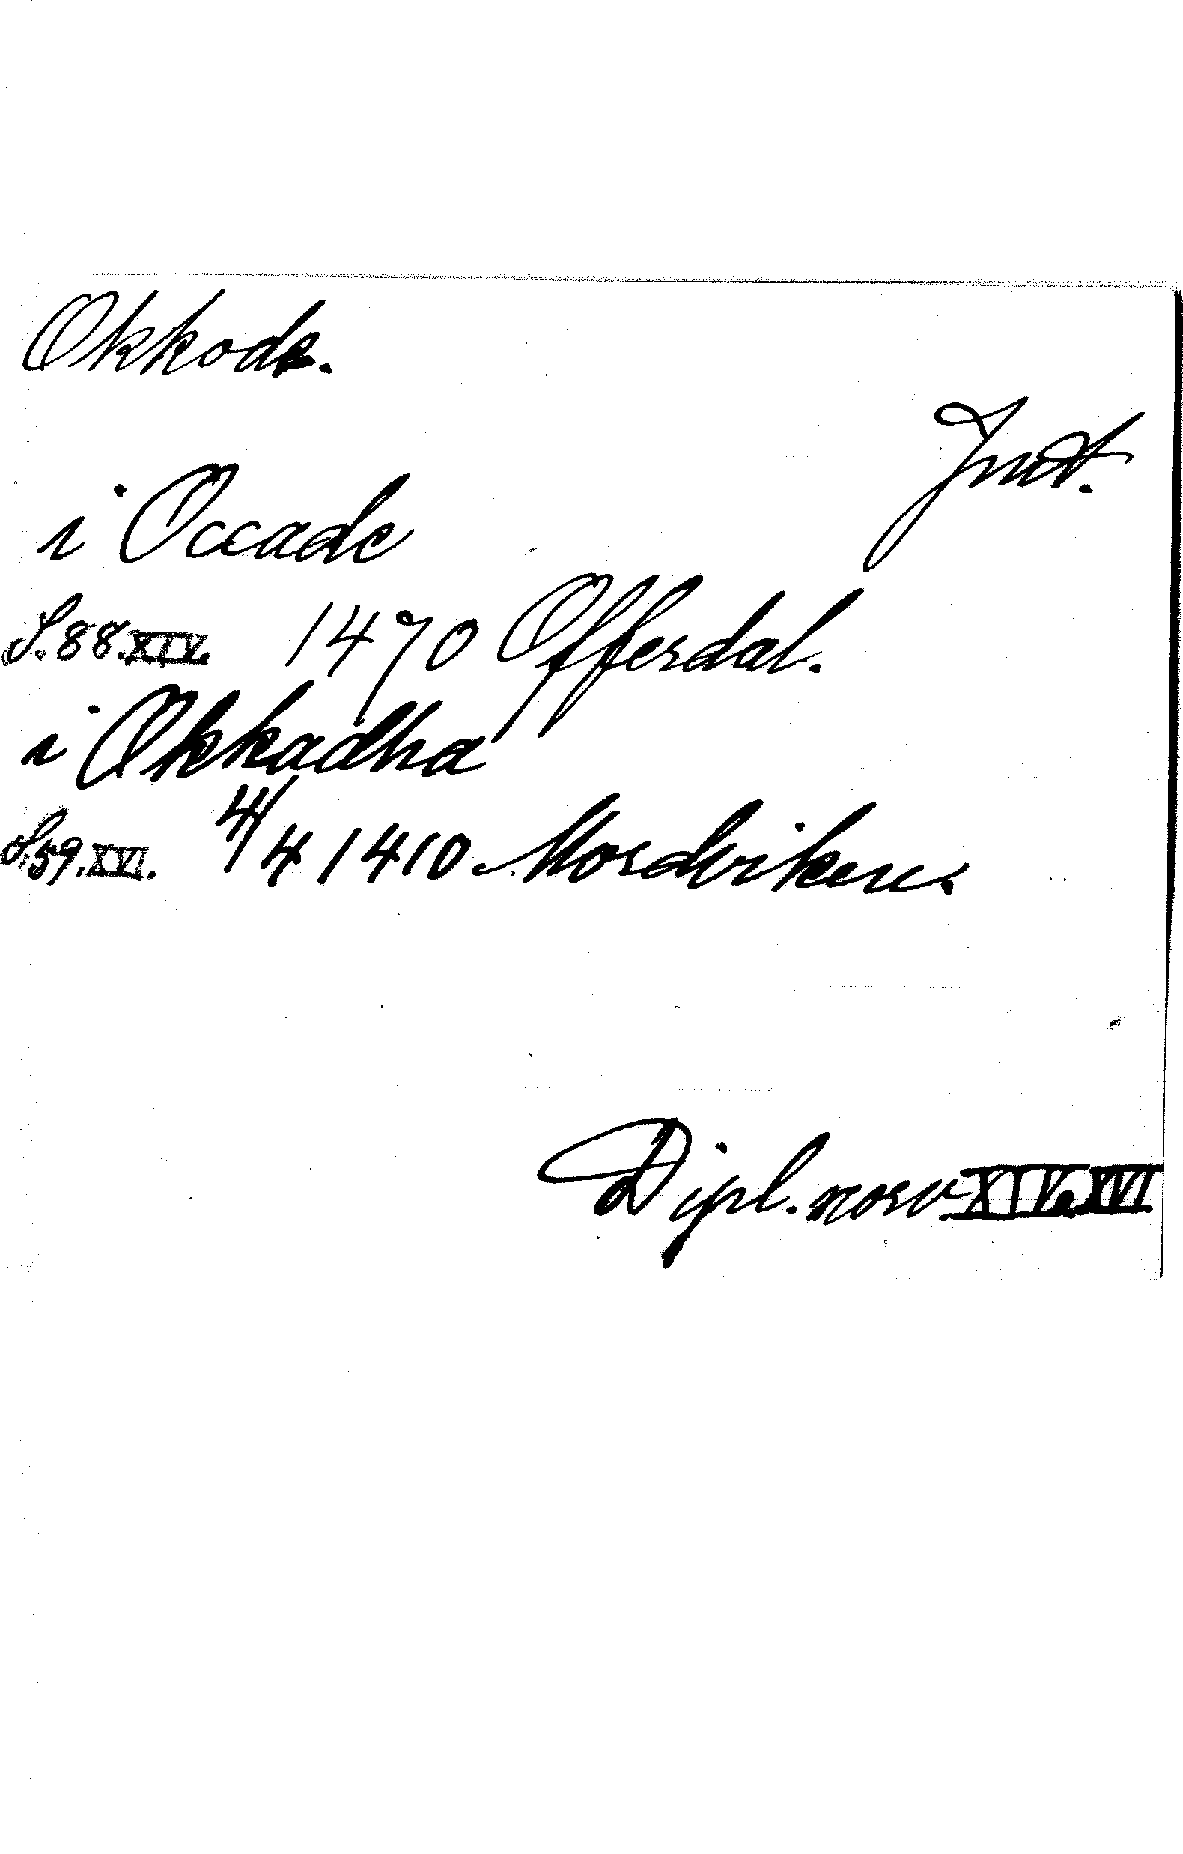 Okkode.
Jmt.
i Occade
S. 88. XIV. 1470 Offerdal.
i Okkadha
S. 59. XVI. 4/4 1410 Mordviken.
Dipl. norv XIV. XVI